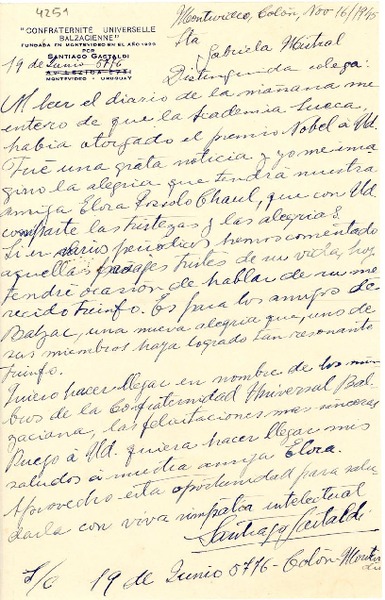 4251
"CONFRATERNITE UNIVERSELLE
BALZACIENNE"
FUNDADA EN MONTEVIDEO EN EL AÑO 1930
POR
SANTIAGO GASTALDI
19 de Junio 5776
AV. LEZICA
MONTEVIDEO - URUGUAY
Montevideo, Colón, Nov 16/1945
Sta
Gabriela Mistral
Distinguida colega:
Al leer el diario de la mañana me
entero de que la Academia Sueca,
habia otorgado el premio Nobel á Ud.
Fué una grata noticia y yo me ima
gino la alegria que tendrá nuestra
amiga Elora Chaul, que con Ud
comparte las tristezas y las alegrias.
Si en varios periodicos hemos comentado
aquellos pasajes tristes de su vida, hoy
tendré ocasión de hablar de su me
recido triunfo. Es para los amigos de
Balzac, una nueva alegria que, uno de
sus miembros haya logrado tan resonante
triunfo.
Quiero hacer llegar en nombre de los miem
bros de la Confraternidad Universal Bal
zaciana, las felicitaciones mas sinceras
Ruego á Ud. quiera hacer llegar mis
saludos á nuestra amiga Elora.
Aprovecho esta oportunidad para salu
darla con viva simpatia intelectual
Santiago Gastaldi
S/c 19 de Junio 5776 - Colón - Montevi
deo